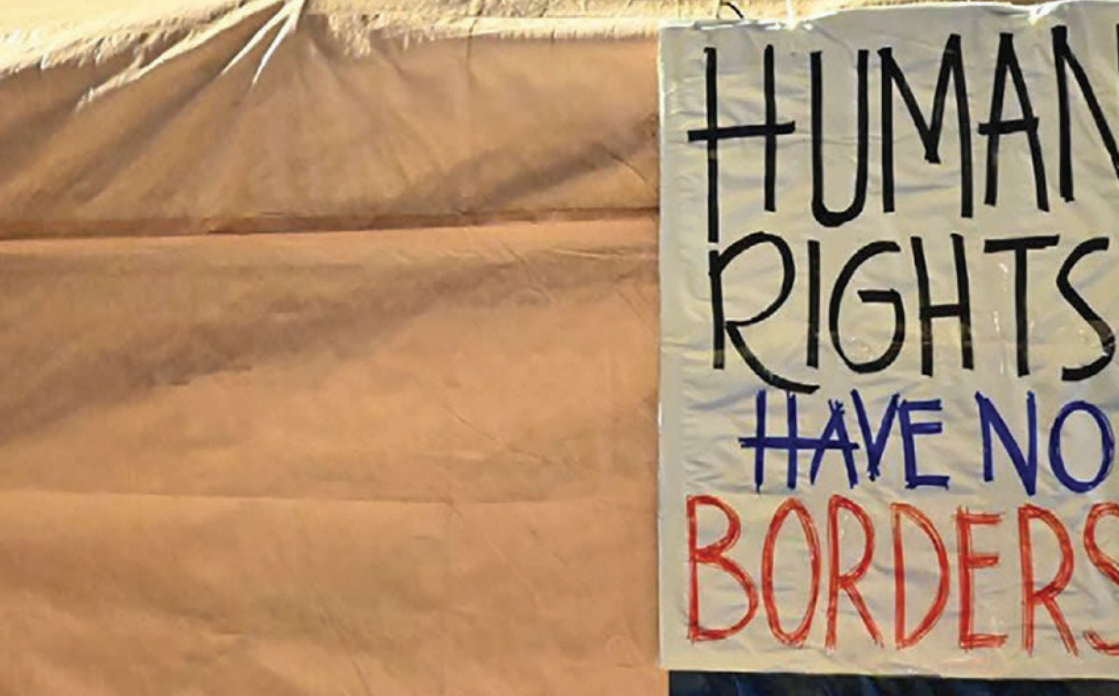 HUMAN
RIGHTS
HAVE NO
BORDERS